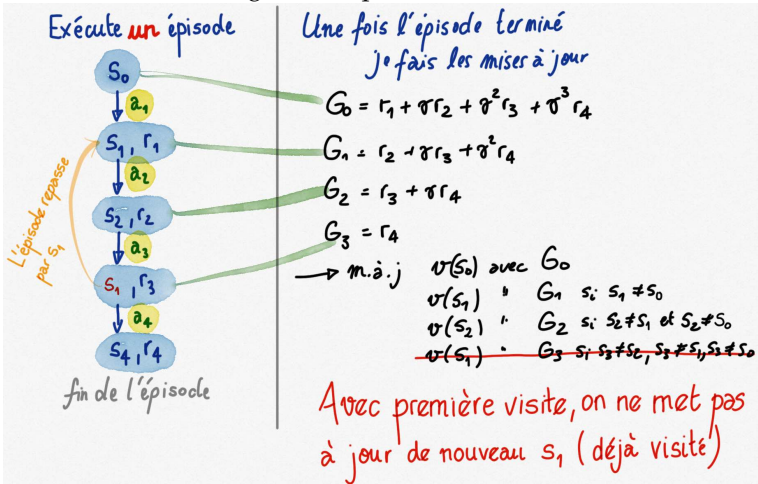 Exécute un épisode
S₀
a₁
S₁, r₁
a₂
S₂, r₂
a₃
S₁, r₃
a₄
S₄, r₄
fin de l'épisode
L'épisode repasse
par S₁
Une fois l'épisode terminé
je fais les mises à jour
G₀ = r₁ + γr₂ + γ²r₃ + γ³r₄
G₁ = r₂ + γr₃ + γ²r₄
G₂ = r₃ + γr₄
G₃ = r₄
→ m.à.j v(S₀) avec G₀
v(S₁) " G₁ si S₁ ≠ S₀
v(S₂) " G₂ si S₂ ≠ S₁ et S₂ ≠ S₀
v(S₁) " G₃ si S₃ ≠ S₂, S₃ ≠ S₁, S₃ ≠ S₀
Avec première visite, on ne met pas
à jour de nouveau S₁ (déjà visité)